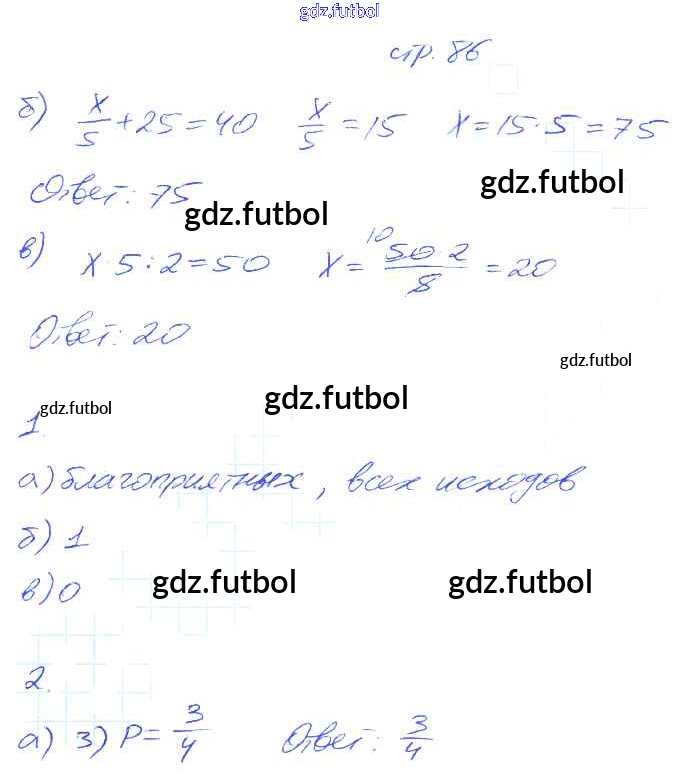 gdz.futbol
стр. 86
б) x/5 + 25 = 40 x/5 = 15 x = 15 · 5 = 75
Ответ: 75 gdz.futbol gdz.futbol
в) x · 5 : 2 = 50 x = 10 50 · 2/8 = 20
Ответ: 20
gdz.futbol gdz.futbol gdz.futbol
1.
а) благоприятных, всех исходов
б) 1
в) 0 gdz.futbol gdz.futbol
2.
а) 3) P = 3/4 Ответ: 3/4